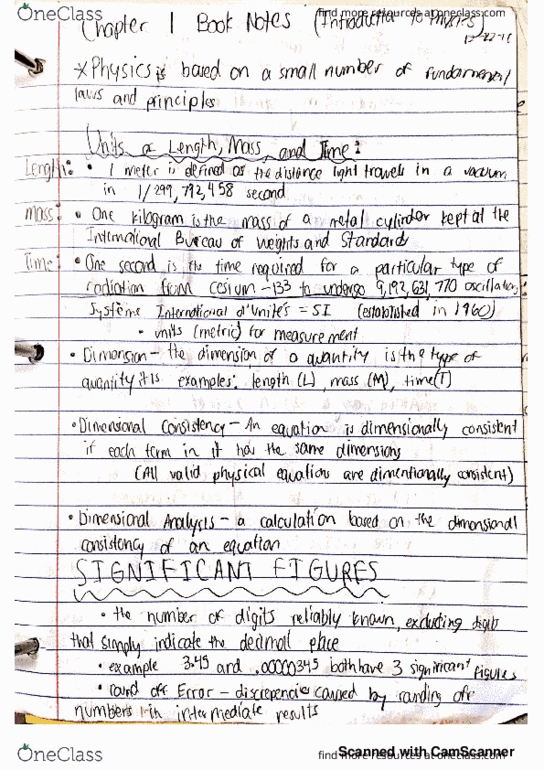 OneClass
find more resources at oneclass.com
Chapter 1 Book Notes (Introduction to Physics)
*Physics is based on a small number of fundamental
laws and principles
Units of Length, Mass, and Time:
Length: • 1 meter is defined as the distance light travels in a vacuum
in 1/299,792,458 second
mass: • One kilogram is the mass of a metal cylinder kept at the
International Bureau of Weights and Standards
Time: • One second is the time required for a particular type of
radiation from cesium-133 to undergo 9,192,631,770 oscillations
Système International d'Unités = SI (established in 1960)
• units (metric) for measurement
• Dimension - the dimension of a quantity is the type of
quantity it is examples: length (L), mass (M), time(T)
• Dimensional Consistency - An equation is dimensionally consistent
if each term in it has the same dimensions
(All valid physical equations are dimentionally consistent)
• Dimensional Analysis - a calculation based on the dimensional
consistency of an equation
SIGNIFICANT FIGURES
• the number of digits reliably known, excluding digits
that simply indicate the decimal place
• example 3.45 and .0000345 both have 3 significant figures
• round off Error - discrepencies caused by rounding off
numbers in intermediate results
OneClass
find more resources at oneclass.com
Scanned with CamScanner